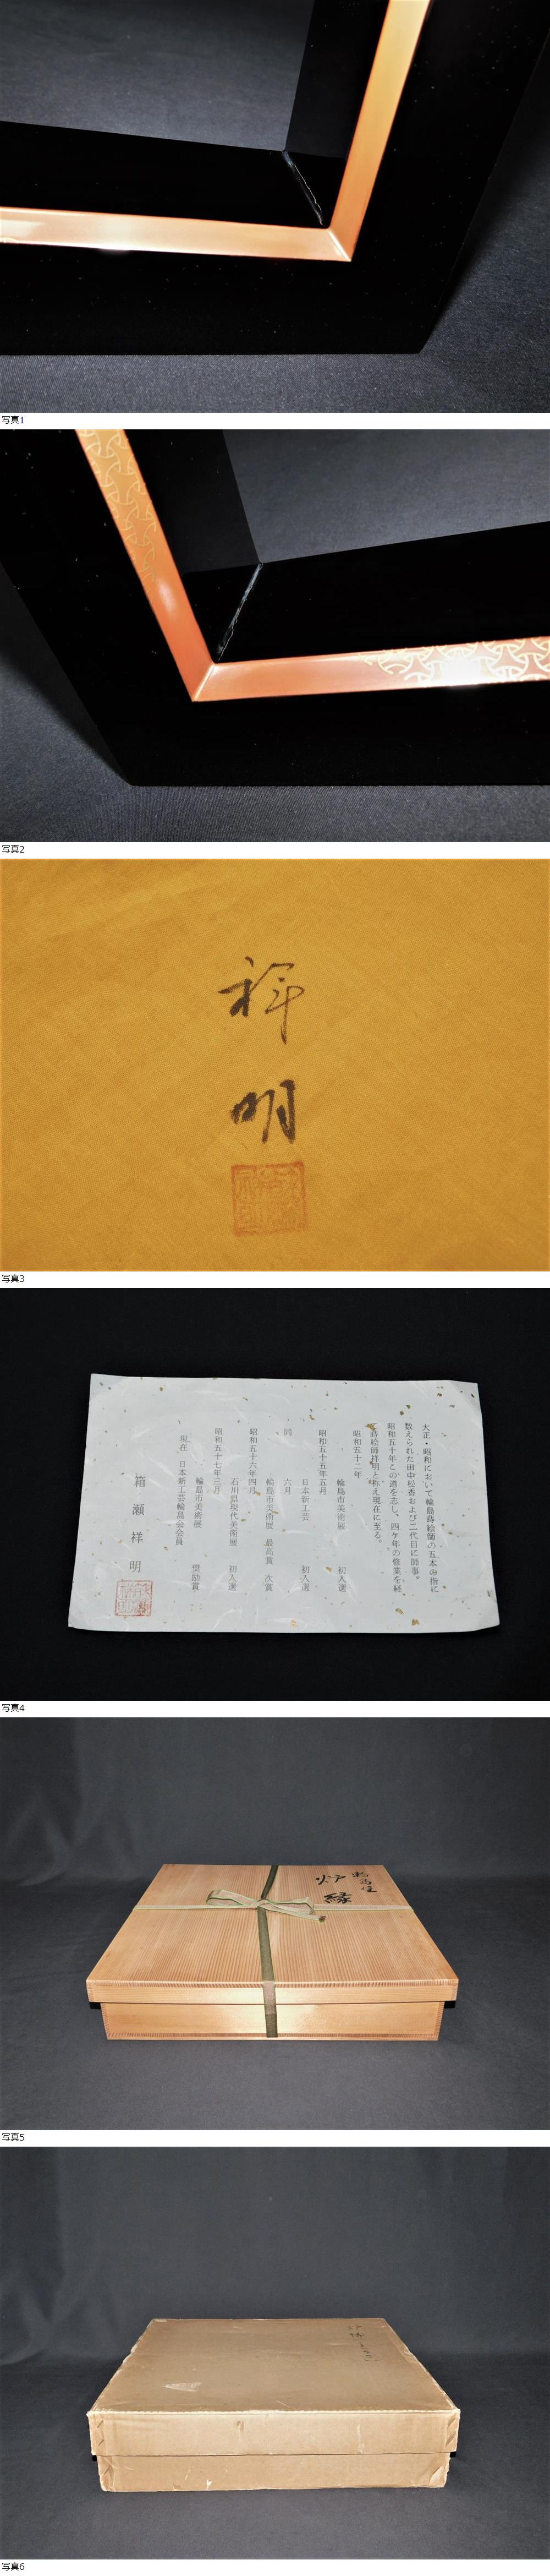 写真1
写真2
祥
明
写真3
大正・昭和において輪島蒔絵師の五本の指に
数えられた田中松香および二代目に師事。
昭和五十年この道を志し、四ケ年の修業を経
蒔絵師祥明と称え現在に至る。
昭和五十二年
輪島市美術展 初入選
昭和五十五年五月
日本新工芸 初入選
同 六月
輪島市美術展 最高賞 次賞
昭和五十六年四月
石川県現代美術展 初入選
昭和五十七年三月
輪島市美術展 奨励賞
現在 日本新工芸輪島公会員
箱瀬祥明
写真4
輪島塗
炉縁
写真5
写真6